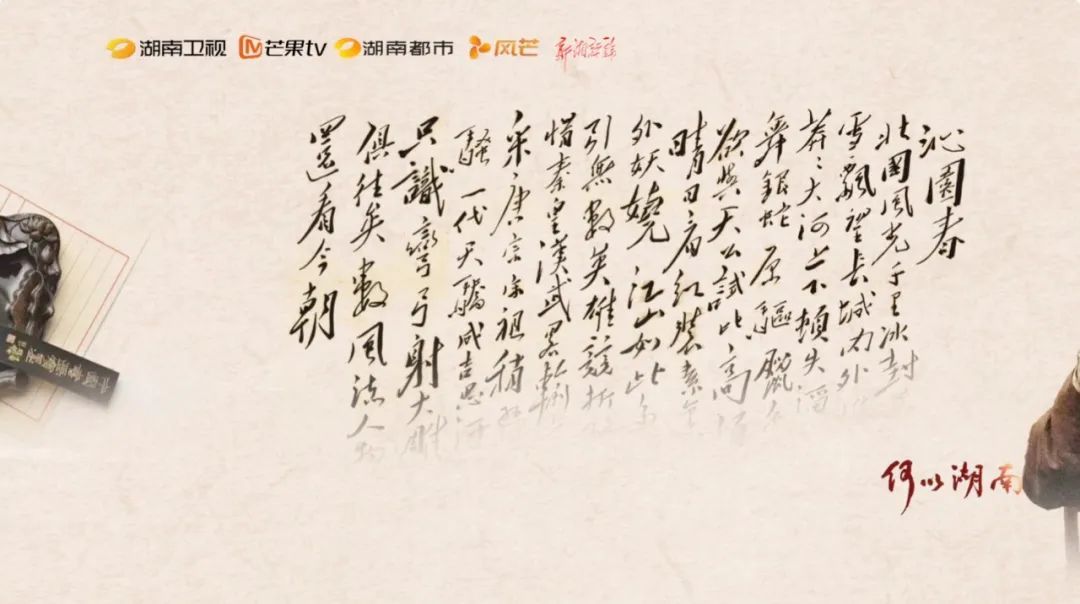 湖南卫视 芒果tv 湖南都市 风芒
沁園春
北國風光千里冰封
雪飄望長城內外
莽〻大河上下頓失滔
舞銀蛇原驅臘象
欲與天公試比高須
晴日看紅裝素裹
外妖嬈江山如此多
引無數英雄競折腰
惜秦皇漢武略輸
采唐宗宋祖稍遜
騷一代天驕成吉思汗
只識彎弓射大雕
俱往矣數風流人物
還看今朝
何以湖南